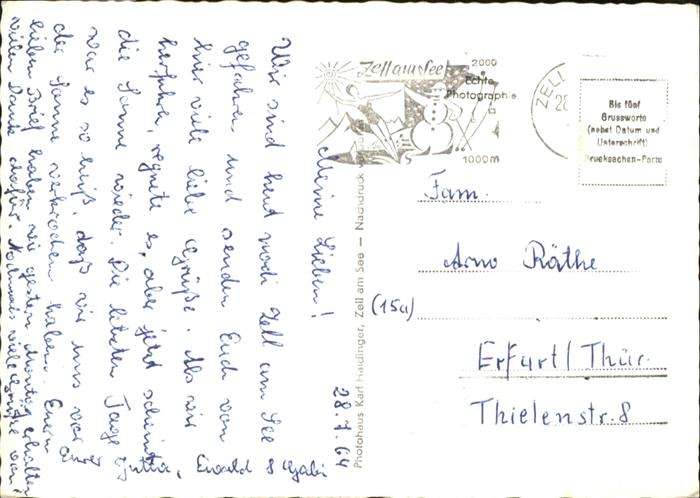 28.7.64
Meine Lieben!
Wir sind heut nach Zell am See
gefahren und senden Euch von
hier viele liebe Grüße. Als wir
herfuhren, regnete es, aber jetzt scheint
die Sonne wieder. Die letzten Tage
war es so heiß, daß wir uns vor
der Sonne verkrochen haben. Euern
lieben Brief haben wir gestern Montag erhalten
vielen Dank dafür. Nochmals viele Grüße von
Ewald & Gabi
Photohaus Karl Haidinger, Zell am See — Nachdruck
Zell am See
2000
1000 m
Echte
Photographie
ZELL
28
Bis fünf
Grussworte
(nebst Datum und
Unterschrift)
Drucksachen-Porto
Fam.
Arno Räthe
(15a)
Erfurt/Thür.
Thielenstr. 8